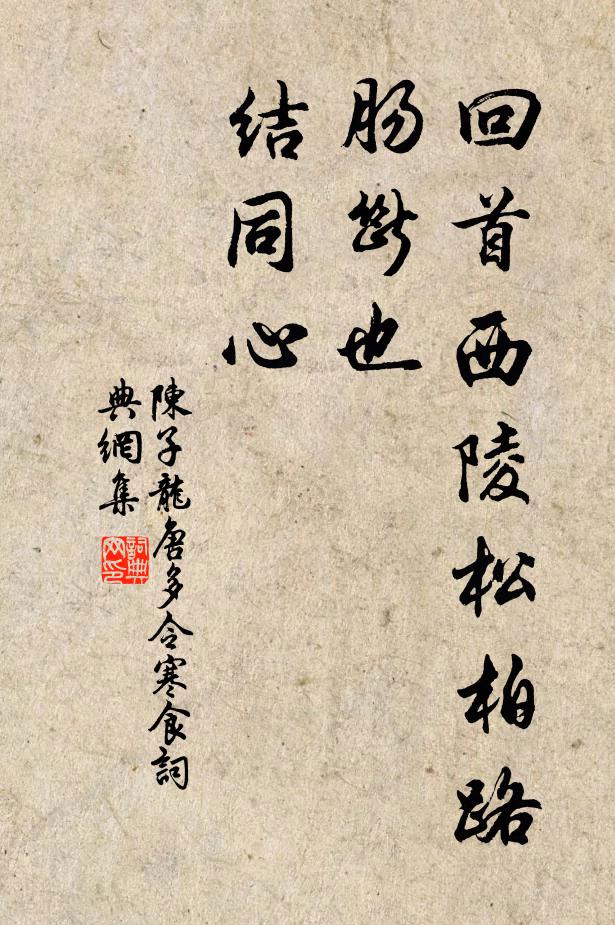 回首西陵松柏路
肠斷也
结同心
陳子龍唐多令寒食詞
典網集
詞典
网印